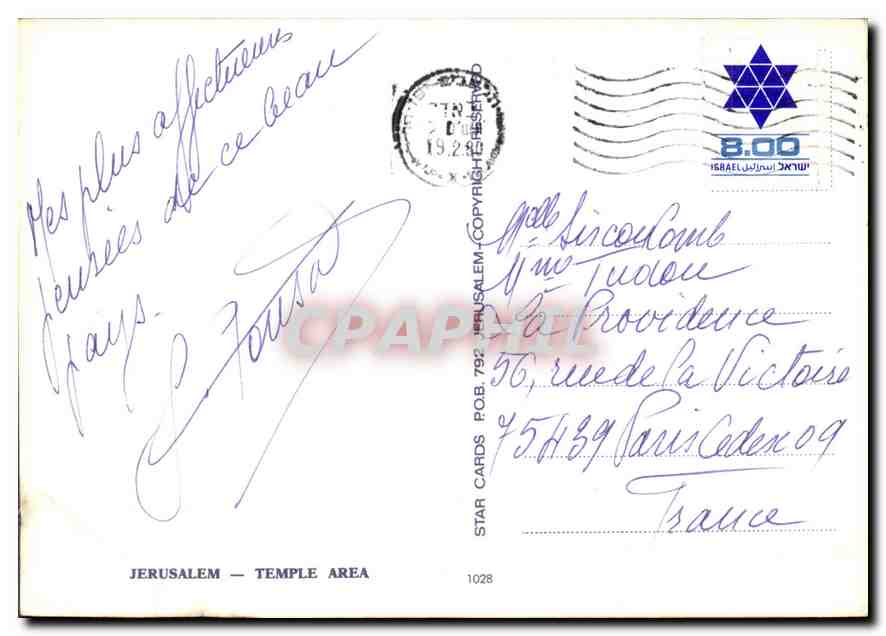 Mes plus affectueuses
pensées de ce beau
pays.
JERUSALEM — TEMPLE AREA
STAR CARDS P.O.B. 792 JERUSALEM-COPYRIGHT RESERVED
1028
19.2.80
8.00
ISRAEL اسرائيل ישראל
Mme Tudou
La Providence
56, rue de la Victoire
75439 Paris Cedex 09
France
CPAPHIL